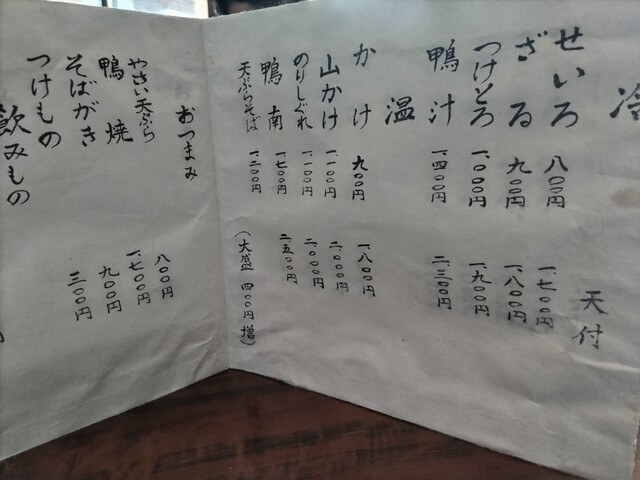 冷 天付
せいろ 八〇〇円 一、七〇〇円
ざる 九〇〇円 一、八〇〇円
つけとろ 一、〇〇〇円 一、九〇〇円
鴨汁 一、四〇〇円 二、三〇〇円
温
かけ 九〇〇円 一、八〇〇円
山かけ 一、一〇〇円 二、〇〇〇円
のりしぐれ 一、一〇〇円 二、〇〇〇円
鴨南 一、七〇〇円 二、五〇〇円
天ぷらそば 一、二〇〇円
(大盛 四〇〇円増)
おつまみ
やさい天ぷら 八〇〇円
鴨焼 一、七〇〇円
そばがき 九〇〇円
つけもの 三〇〇円
飲みもの